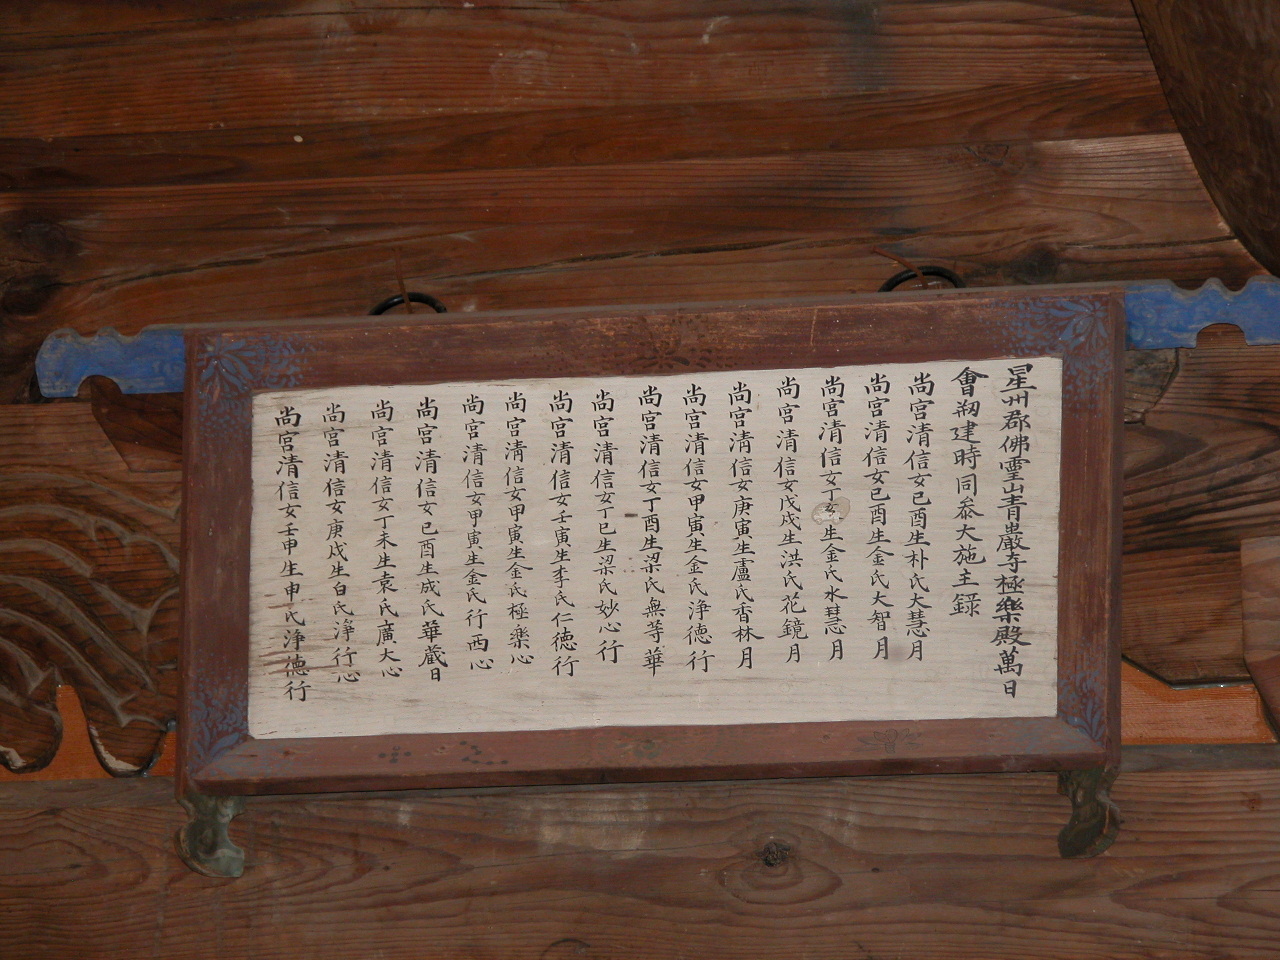 星州郡佛靈山青巖寺極樂殿萬日
會剏建時同叅大施主録
尚宮清信女己酉生朴氏大慧月
尚宮清信女己酉生金氏大智月
尚宮清信女丁亥生金氏水慧月
尚宮清信女戊戌生洪氏花鏡月
尚宮清信女庚寅生盧氏香林月
尚宮清信女甲寅生金氏淨徳行
尚宮清信女丁酉生梁氏無等華
尚宮清信女丁巳生梁氏妙心行
尚宮清信女壬寅生李氏仁徳行
尚宮清信女甲寅生金氏極樂心
尚宮清信女甲寅生金氏行西心
尚宮清信女己酉生成氏華藏日
尚宮清信女丁未生袁氏廣大心
尚宮清信女庚戌生白氏淨行心
尚宮清信女壬申生申氏淨徳行